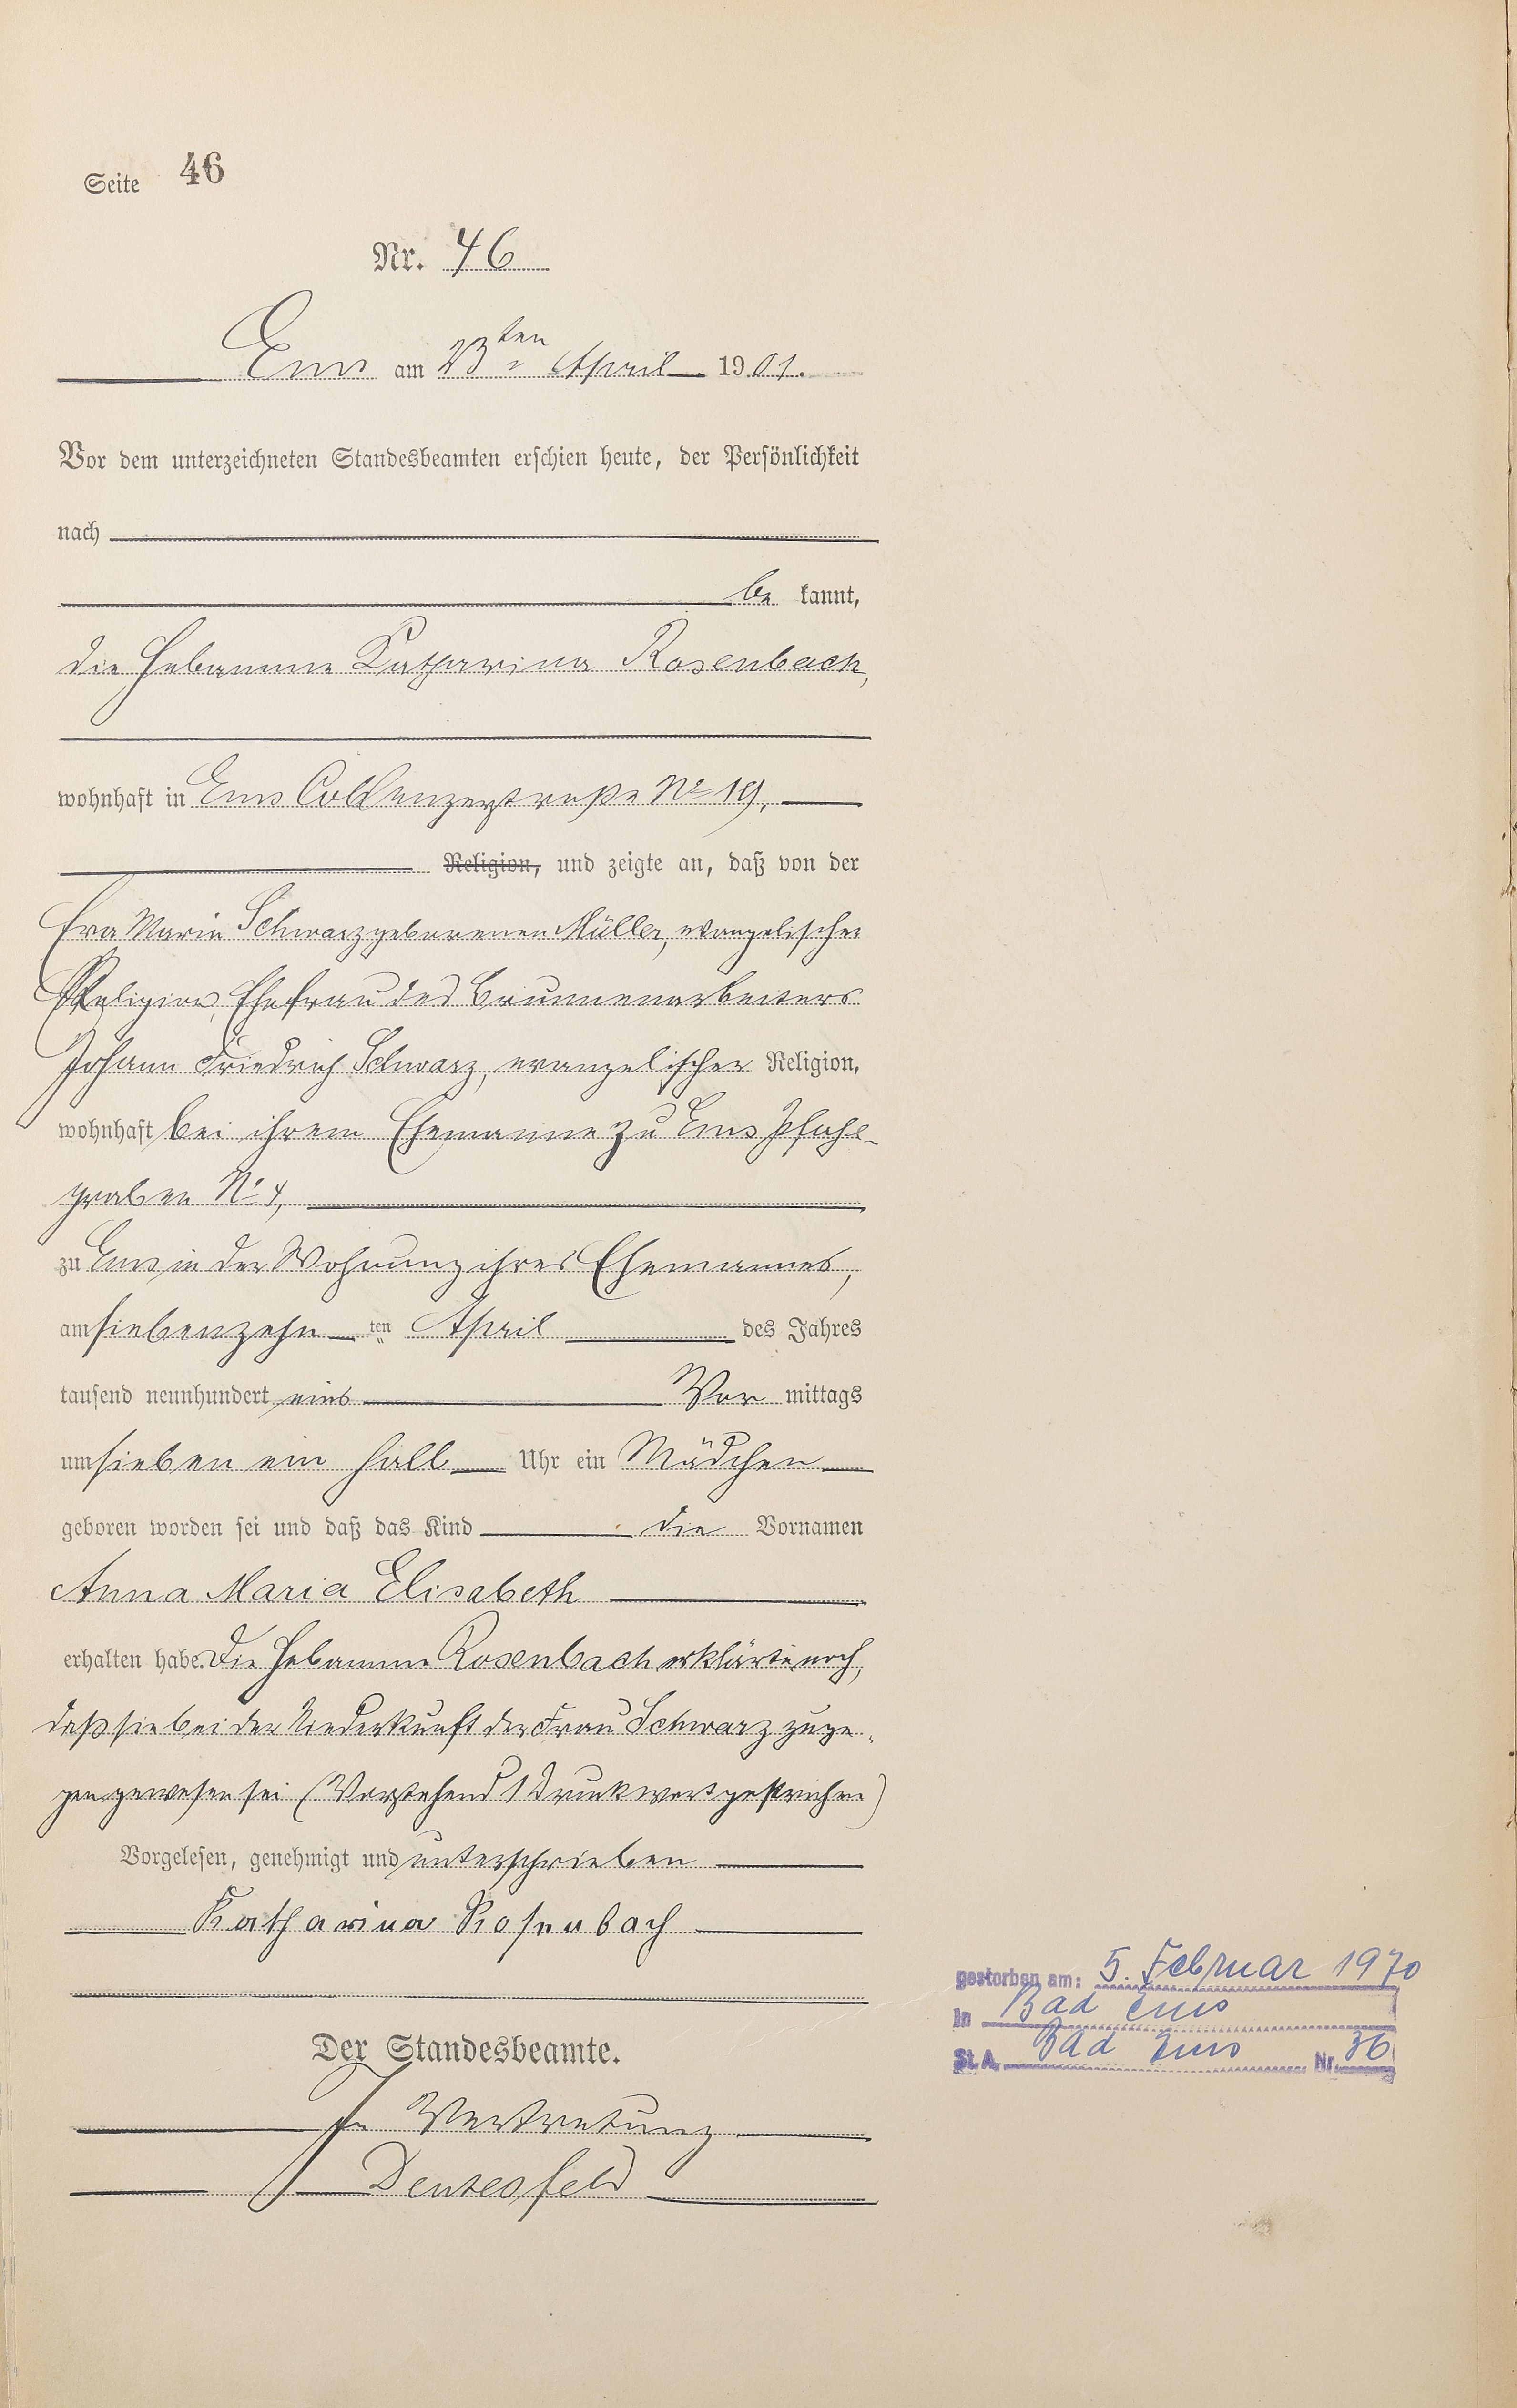 Seite 46
Nr. 46
Ems am 23ten April 1901.
Vor dem unterzeichneten Standesbeamten erschien heute, der Persönlichkeit
nach
be kannt,
die Hebamme Katharina Rosenbach,
wohnhaft in Ems Coblenzerstraße No 19,
Religion, und zeigte an, daß von der
Eva Maria Schwarz geborenen Müller, evangelischer
Religion, Ehefrau des Brunnenarbeiters
Johann Friedrich Schwarz, evangelischer Religion,
wohnhaft bei ihrem Ehemanne zu Ems Pfahl-
graben No 4,
zu Ems, in der Wohnung ihres Ehemannes,
am siebenzehn ten April des Jahres
tausend neunhundert eins Vor mittags
um sieben ein halb Uhr ein Mädchen
geboren worden sei und daß das Kind die Vornamen
Anna Maria Elisabeth
erhalten habe. Die Hebamme Rosenbach erklärte noch,
daß sie bei der Niederkunft der Frau Schwarz zuge-
gen gewesen sei (Vorstehend 1 Druckwort gestrichen)
Vorgelesen, genehmigt und unterschrieben
Katharina Rosenbach
Der Standesbeamte.
In Vertretung
gestorben am: 5. Februar 1970
in Bad Ems
St. A. Bad Ems Nr. 36